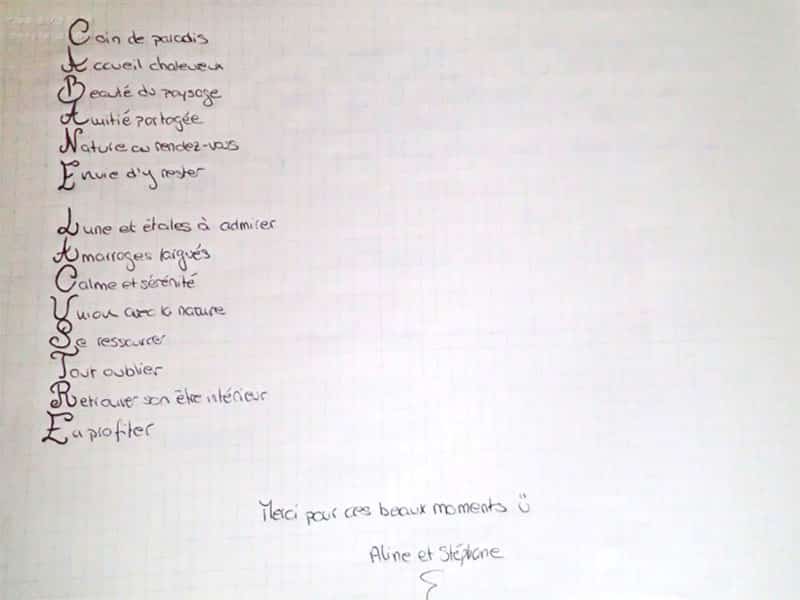 Coin de paradis
Accueil chaleureux
Beauté du paysage
Amitié partagée
Nature au rendez-vous
Envie d'y rester
Lune et étoiles à admirer
Amarrages largués
Calme et sérénité
Union avec la nature
Se ressourcer
Tout oublier
Retrouver son être intérieur
En profiter
Merci pour ces beaux moments ü
Aline et Stéphane